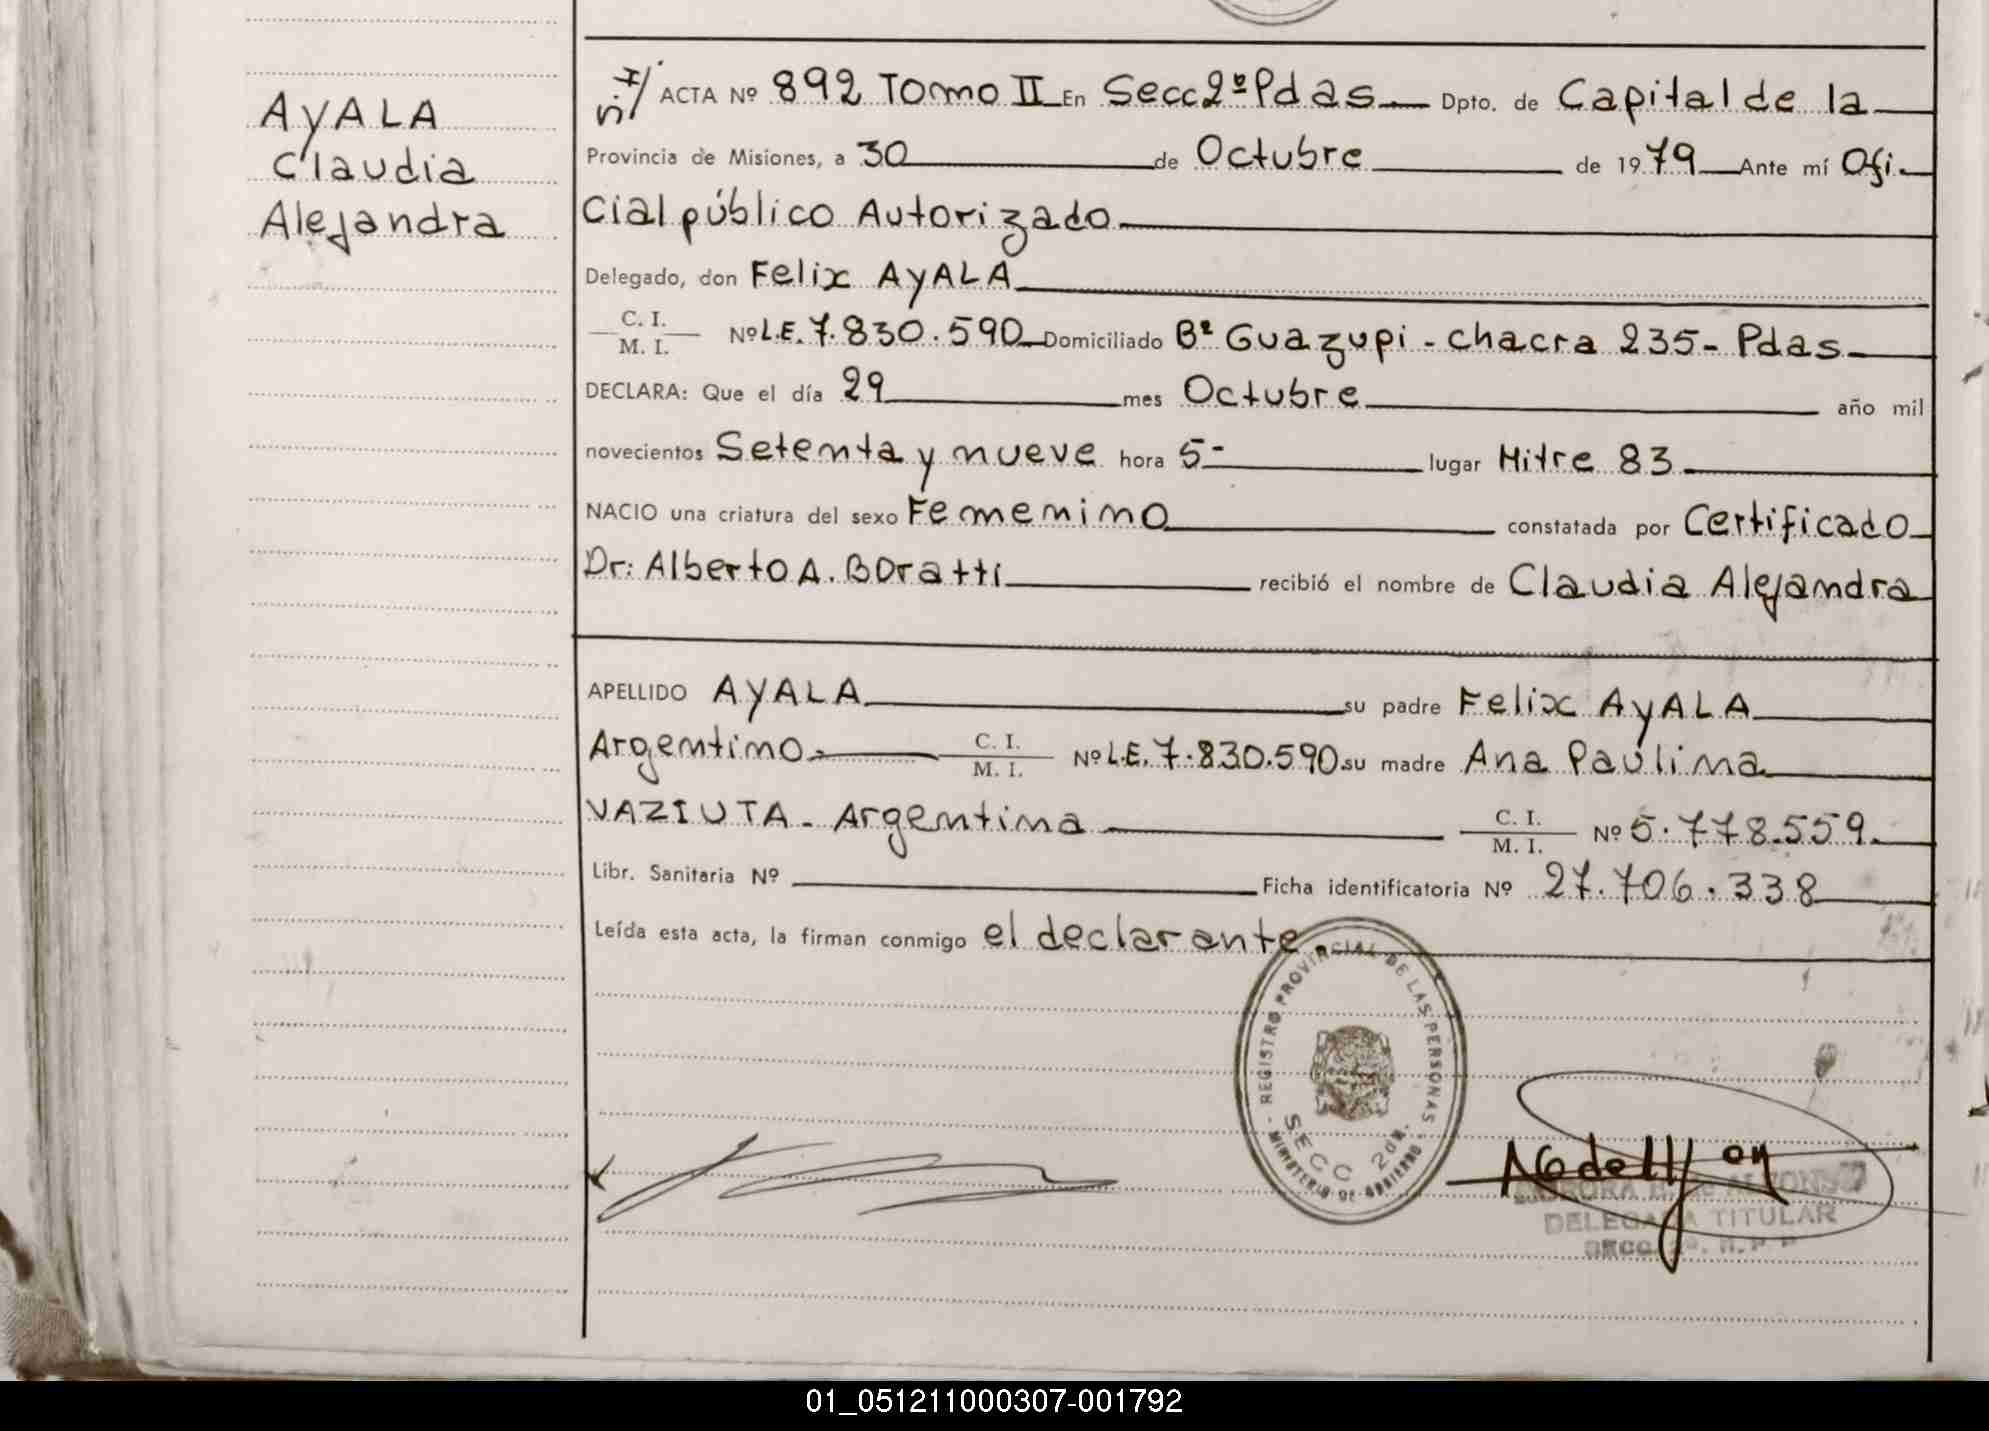 AYALA
Claudia
Alejandra
ACTA Nº 892 Tomo II En Secc 2º Pdas Dpto. de Capital de la
Provincia de Misiones, a 30 de Octubre de 1979 Ante mí Ofi
cial público Autorizado
Delegado, don Felix AYALA
C. I.
M. I. Nº L.E. 7.830.590 Domiciliado Bº Guazupi - chacra 235 - Pdas
DECLARA: Que el día 29 mes Octubre año mil
novecientos Setenta y nueve hora 5- lugar Mitre 83
NACIO una criatura del sexo Femenino constatada por Certificado
Dr: Alberto A. Boratti recibió el nombre de Claudia Alejandra
APELLIDO AYALA su padre Felix AYALA
Argentino - C. I. M. I. Nº L.E. 7.830.590 su madre Ana Paulina
VAZIUTA - Argentina C. I. M. I. Nº 5.778.559
Libr. Sanitaria Nº Ficha identificatoria Nº 27.706.338
Leída esta acta, la firman conmigo el declarante.
REGISTRO PROVINCIAL DE LAS PERSONAS - MINISTERIO DE GOBIERNO -
SECC 2da.
DELEGADA TITULAR
01_051211000307-001792